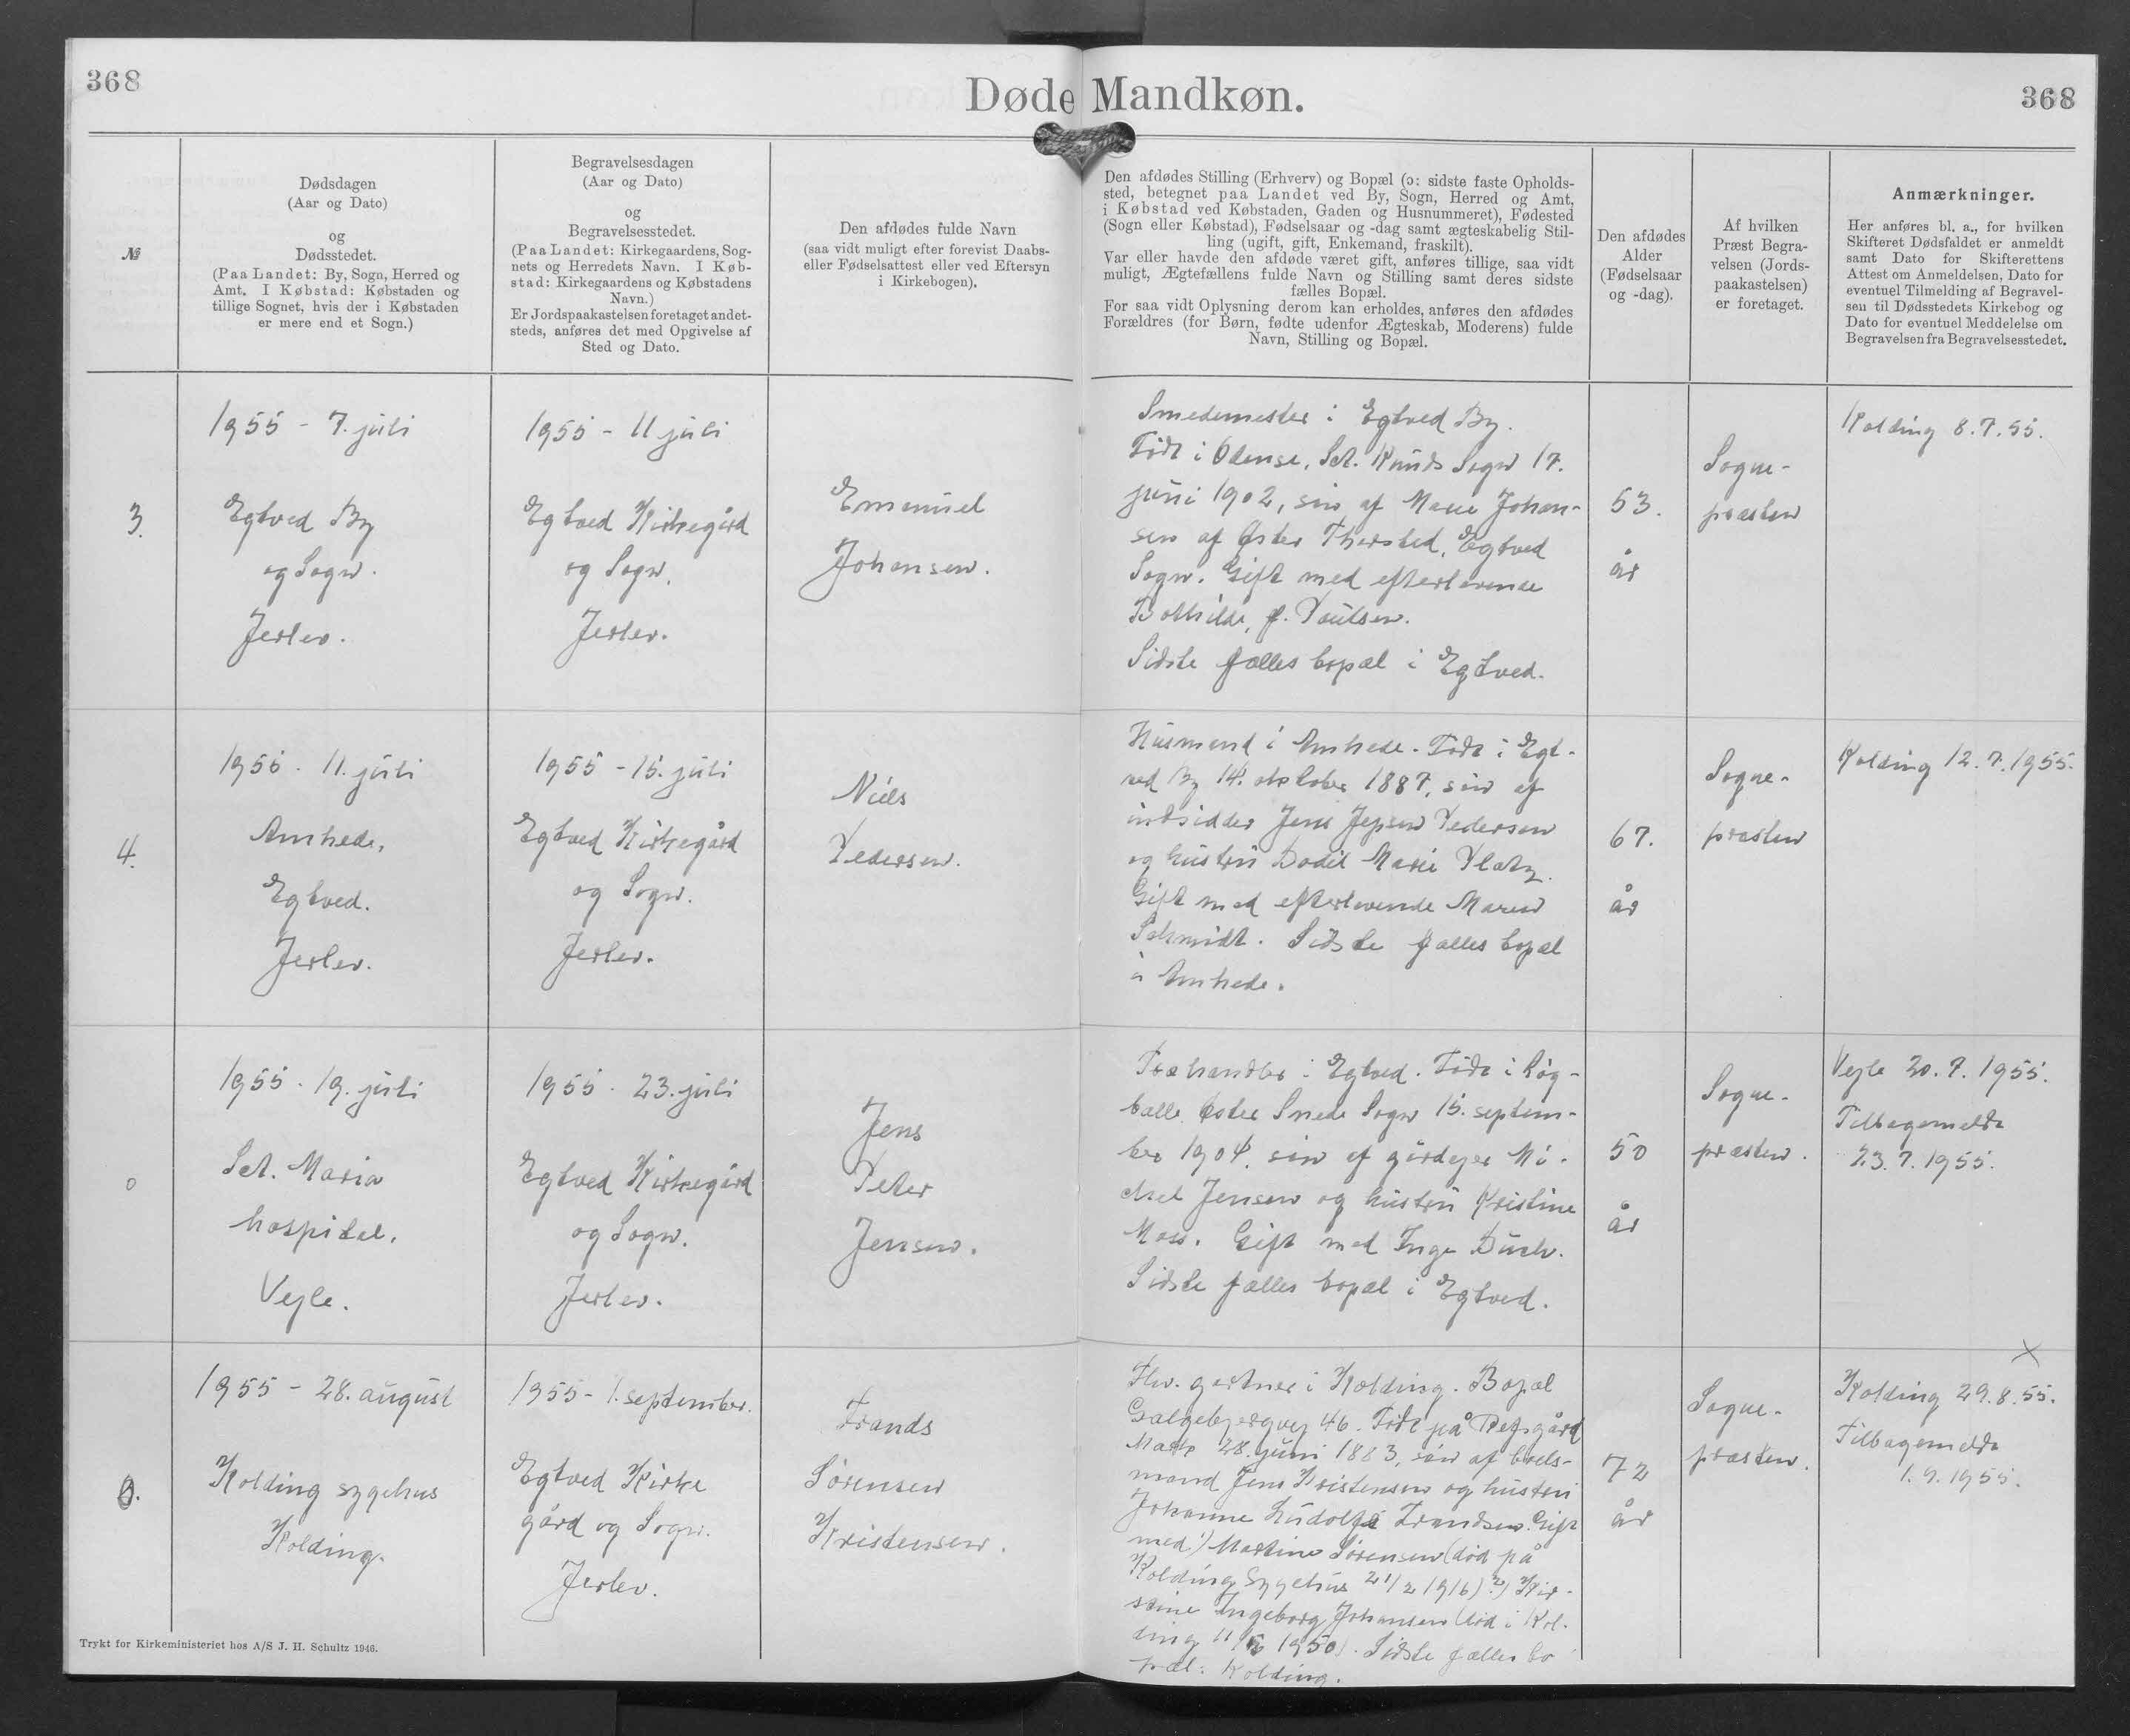 368
Døde Mandkøn.
368
№
Dødsdagen
(Aar og Dato)
og
Dødsstedet.
(Paa Landet: By, Sogn, Herred og
Amt. I Købstad: Købstaden og
tillige Sognet, hvis der i Købstaden
er mere end et Sogn.)
Begravelsesdagen
(Aar og Dato)
og
Begravelsesstedet.
(Paa Landet: Kirkegaardens, Sog-
nets og Herredets Navn. I Køb-
stad: Kirkegaardens og Købstadens
Navn.)
Er Jordspaakastelsen foretaget andet-
steds, anføres det med Opgivelse af
Sted og Dato.
Den afdødes fulde Navn
(saa vidt muligt efter forevist Daabs-
eller Fødselsattest eller ved Eftersyn
i Kirkebogen).
Den afdødes Stilling (Erhverv) og Bopæl (ɔ: sidste faste Opholds-
sted, betegnet paa Landet ved By, Sogn, Herred og Amt,
i Købstad ved Købstaden, Gaden og Husnummeret), Fødested
(Sogn eller Købstad), Fødselsaar og -dag samt ægteskabelig Stil-
ling (ugift, gift, Enkemand, fraskilt).
Var eller havde den afdøde været gift, anføres tillige, saa vidt
muligt, Ægtefællens fulde Navn og Stilling samt deres sidste
fælles Bopæl.
For saa vidt Oplysning derom kan erholdes, anføres den afdødes
Forældres (for Børn, fødte udenfor Ægteskab, Moderens) fulde
Navn, Stilling og Bopæl.
Den afdødes
Alder
(Fødselsaar
og -dag).
Af hvilken
Præst Begra-
velsen (Jords-
paakastelsen)
er foretaget.
Anmærkninger.
Her anføres bl. a., for hvilken
Skifteret Dødsfaldet er anmeldt
samt Dato for Skifterettens
Attest om Anmeldelsen, Dato for
eventuel Tilmelding af Begravel-
sen til Dødsstedets Kirkebog og
Dato for eventuel Meddelelse om
Begravelsen fra Begravelsesstedet.
3.
1955 - 7. juli
Egtved By
og Sogn.
Jerlev.
1955 - 11 juli
Egtved Kirkegård
og Sogn.
Jerlev.
Emanuel
Johansen.
Smedemester i Egtved By.
Født i Odense, Sct. Knuds Sogn 17.
juni 1902, søn af Marie Johan-
sen af Øster Thorsted, Egtved
Sogn. Gift med efterlevende
Bothilde, f. Poulsen.
Sidste fælles bopæl i Egtved.
53.
år
Sogne-
præsten
Kolding 8.7.55.
4.
1955 - 11. juli
Amhede,
Egtved.
Jerlev.
1955 - 15. juli
Egtved Kirkegård
og Sogn.
Jerlev.
Niels
Pedersen.
Husmand i Amhede. Født i Egt-
ved By 14. oktober 1887, søn af
indsidder Jens Jepsen Pedersen
og hustru Bodil Marie Platz.
Gift med efterlevende Maren
Schmidt. Sidste fælles bopæl
i Amhede.
67.
år
Sogne-
præsten
Kolding 12.7.1955.
0
1955 - 19. juli
Sct. Maria
hospital.
Vejle.
1955 - 23. juli
Egtved Kirkegård
og Sogn.
Jerlev.
Jens
Peter
Jensen.
Træhandler i Egtved. Født i Røg-
balle, Øster Snede Sogn 15. septem-
ber 1904, søn af gårdejer Mi-
chel Jensen og hustru Kristine
Moss. Gift med Inge Buch.
Sidste fælles bopæl i Egtved.
50
år
Sogne-
præsten.
Vejle 20.7.1955.
Tilbagemeldt
23.7.1955.
0.
1955 - 28. august
Kolding sygehus
Kolding.
1955 - 1. september.
Egtved Kirke
gård og Sogn.
Jerlev.
Frands
Sørensen
Kristensen.
Fhv. gartner i Kolding. Bopæl
Galgebjergvej 46. Født på Refsgård
Mark 28. juni 1883, søn af bøels-
mand Jens Kristensen og hustru
Johanne Ludolfs Frandsen. Gift
med 1) Martine Sørensen (død på
Kolding Sygehus 21/2 1916) 2) Kir-
stine Ingeborg Johansen (død i Kol-
ding 11/6 1950). Sidste fælles bo
pæl: Kolding.
72
år
Sogne-
præsten.
x
Kolding 29.8.55.
Tilbagemeldt
1.9.1955.
Trykt for Kirkeministeriet hos A/S J. H. Schultz 1946.